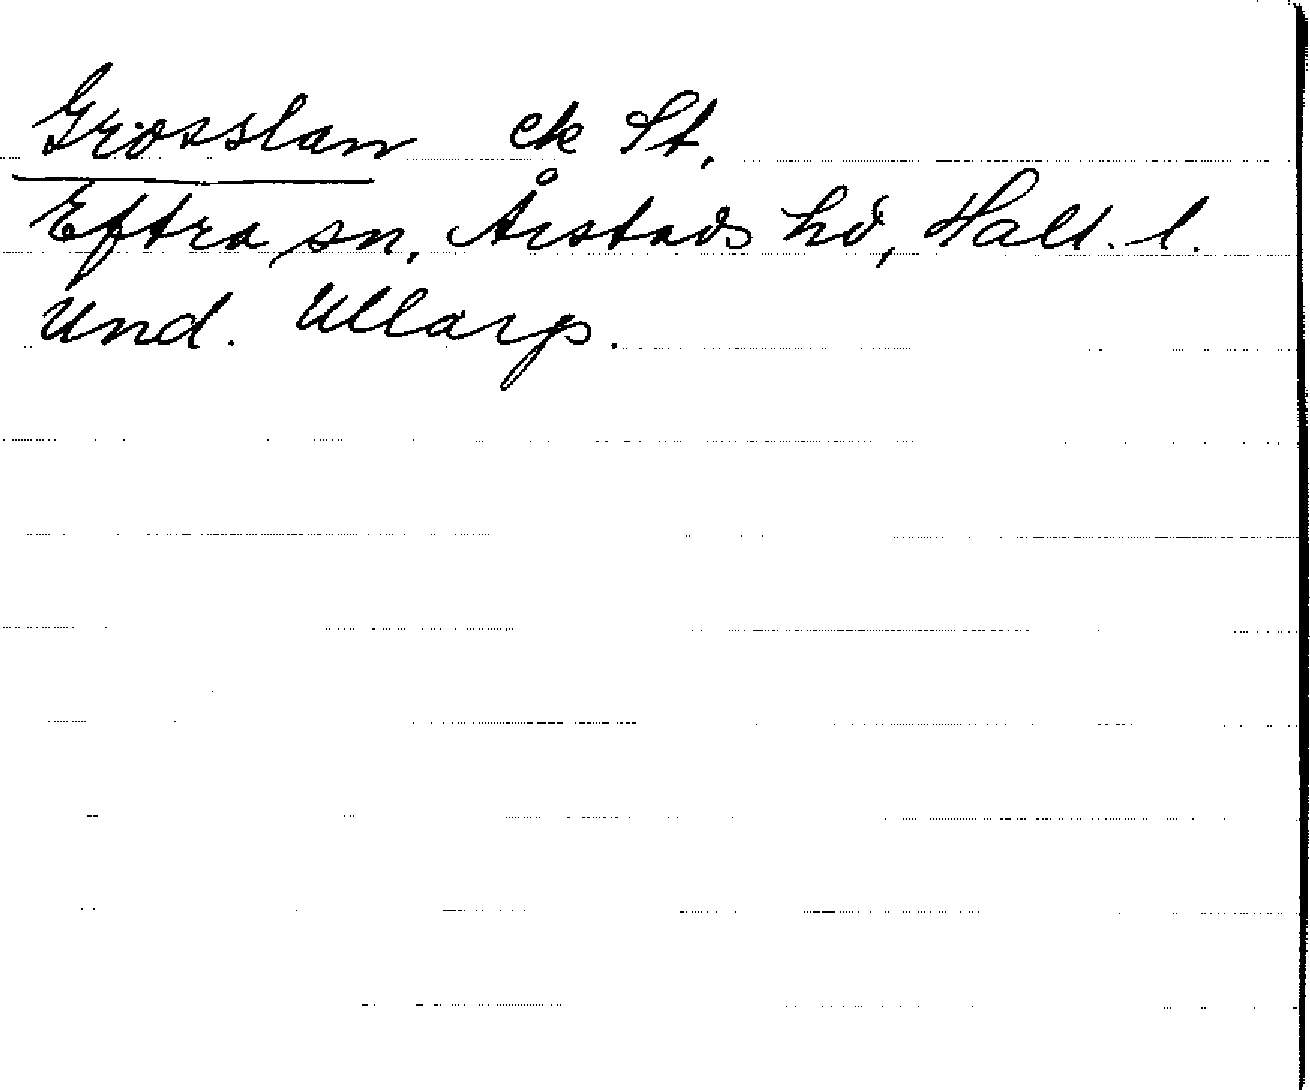 Grosslan ek St.
Eftra sn, Årstads hd, Hall. l.
Und. Ullarp.